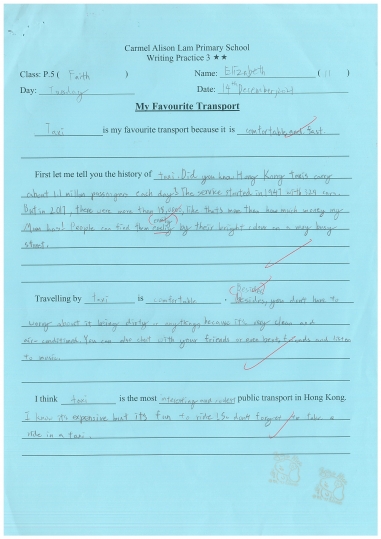 Carmel Alison Lam Primary School
Writing Practice 3 ★★
Class: P.5 ( Faith ) Name: Elizabeth ( 11 )
Day: Tuesday Date: 14th December
My Favourite Transport
Taxi is my favourite transport because it is comfortable and fast
First let me tell you the history of taxi. Did you know Hong Kong taxis carry
about 1.1 million passengers each day? The service started in 1947 with 329 cars.
But in 2017, there were more than 18,000! Like that's more than how much money my
Mum has! People can find them easily by their bright colour on a very busy
street.
Travelling by taxi is comfortable . Besides, you don't have to
worry about it being dirty or anythings because it's very clean and
air conditioned. You can also chat with your friends or even best friends and listen
to music.
I think taxi is the most interesting and public transport in Hong Kong.
I know it's expensive but it's fun to ride! So don't forget to take a
ride in a taxi.